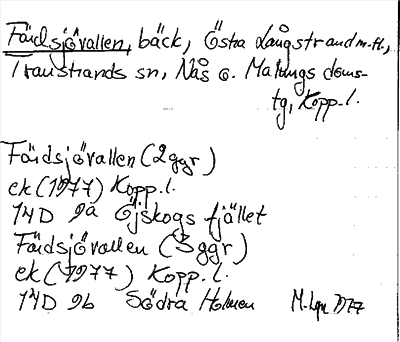 Färdsjövallen, bäck, Östra Långstrand m.fl.,
Transtrands sn, Nås o. Malungs doms-
tg, Kopp.l.
Färdsjövallen (2ggr)
ek (1977) Kopp.l.
14D 9a Öjskogsfjället
Färdsjövallen (3ggr)
ek (1977) Kopp.l.
14D 9b Södra Holmen M. Lgn 1977